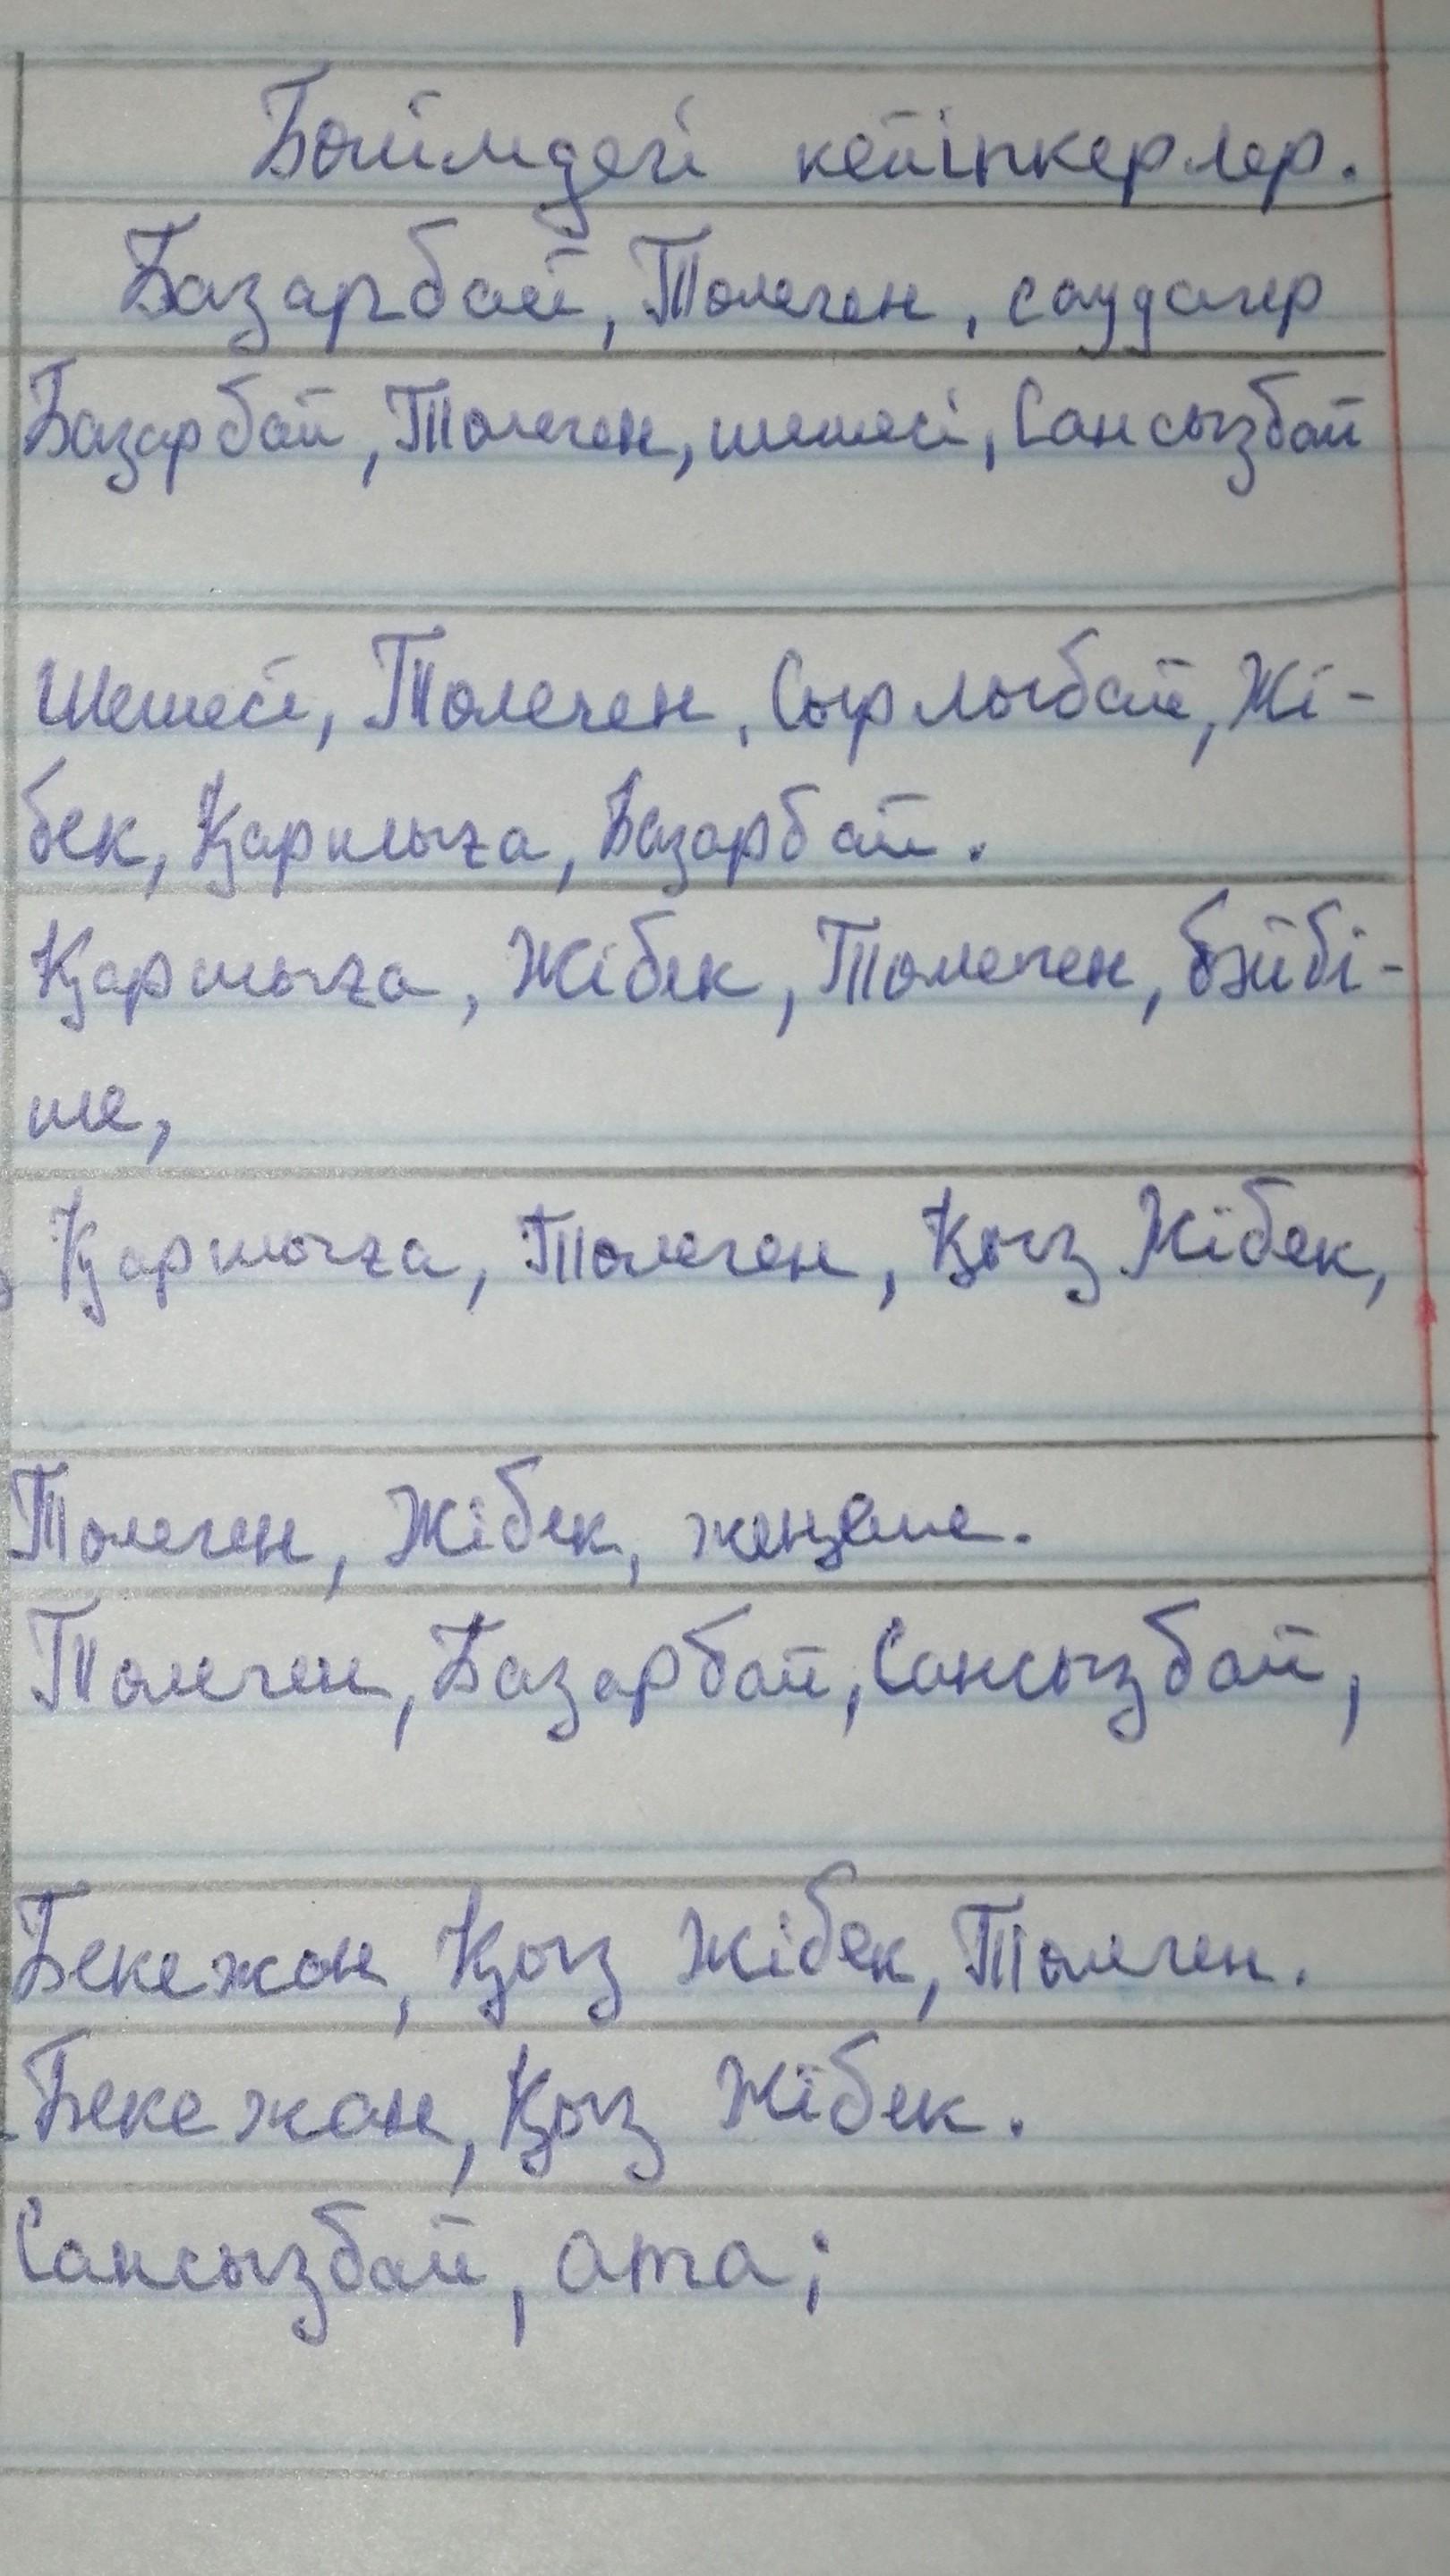 Бөлімдегі кейіпкерлер.
Базарбай, Төлеген, саудагер
Базарбай, Төлеген, шешесі, Сансызбай
Шешесі, Төлеген, Сырлыбай, Жі-
бек, Қаршыға, Базарбай.
Қаршыға, Жібек, Төлеген, бәйбі-
ше,
Қаршыға, Төлеген, Қыз Жібек,
Төлеген, Жібек, жеңгеше.
Төлеген, Базарбай, Сансызбай,
Бекежан, Қыз Жібек, Төлеген.
Бекежан, Қыз Жібек.
Сансызбай, ата;